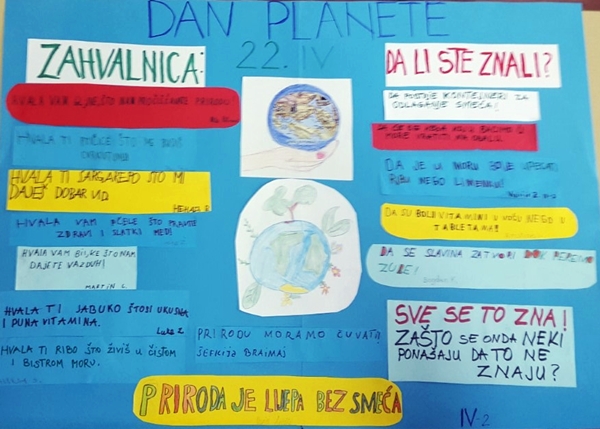 DAN PLANETE
22. IV
ZAHVALNICA:
HVALA TI PTIČICE ŠTO
HVALA TI ŠARGAREPO ŠTO MI
DAJEŠ DOBAR VID.
HVALA VAM PČELE ŠTO PRAVITE
ZDRAVI I SLATKI MED!
HVALA VAM BILJKE ŠTO NAM
DAJETE VAZDUH!
MARTIN L.
HVALA TI JABUKO ŠTO SI UKUSNA
I PUNA VITAMINA.
Luka Z.
HVALA TI RIBO ŠTO ŽIVIŠ U ČISTOM
I BISTROM MORU.
PRIRODU MORAMO ČUVATI!
ŠEFKIJA BRAIMAJ
PRIRODA JE LIJEPA BEZ SMEĆA
DA LI STE ZNALI?
DA POSTOJE KONTEJNERI ZA
ODLAGANJE SMEĆA!
MORE VRATITI NA OBALU.
DA JE U MORU BOLJE UPECATI
RIBU NEGO LIMENKU!
DA SU BOLJI VITAMINI U VOĆU NEGO U
TABLETAMA!
DA SE SLAVINA ZATVORI DOK PEREMO
ZUBE!
Bogdan
SVE SE TO ZNA!
ZAŠTO SE ONDA NEKI
PONAŠAJU DA TO NE
ZNAJU?
IV-2